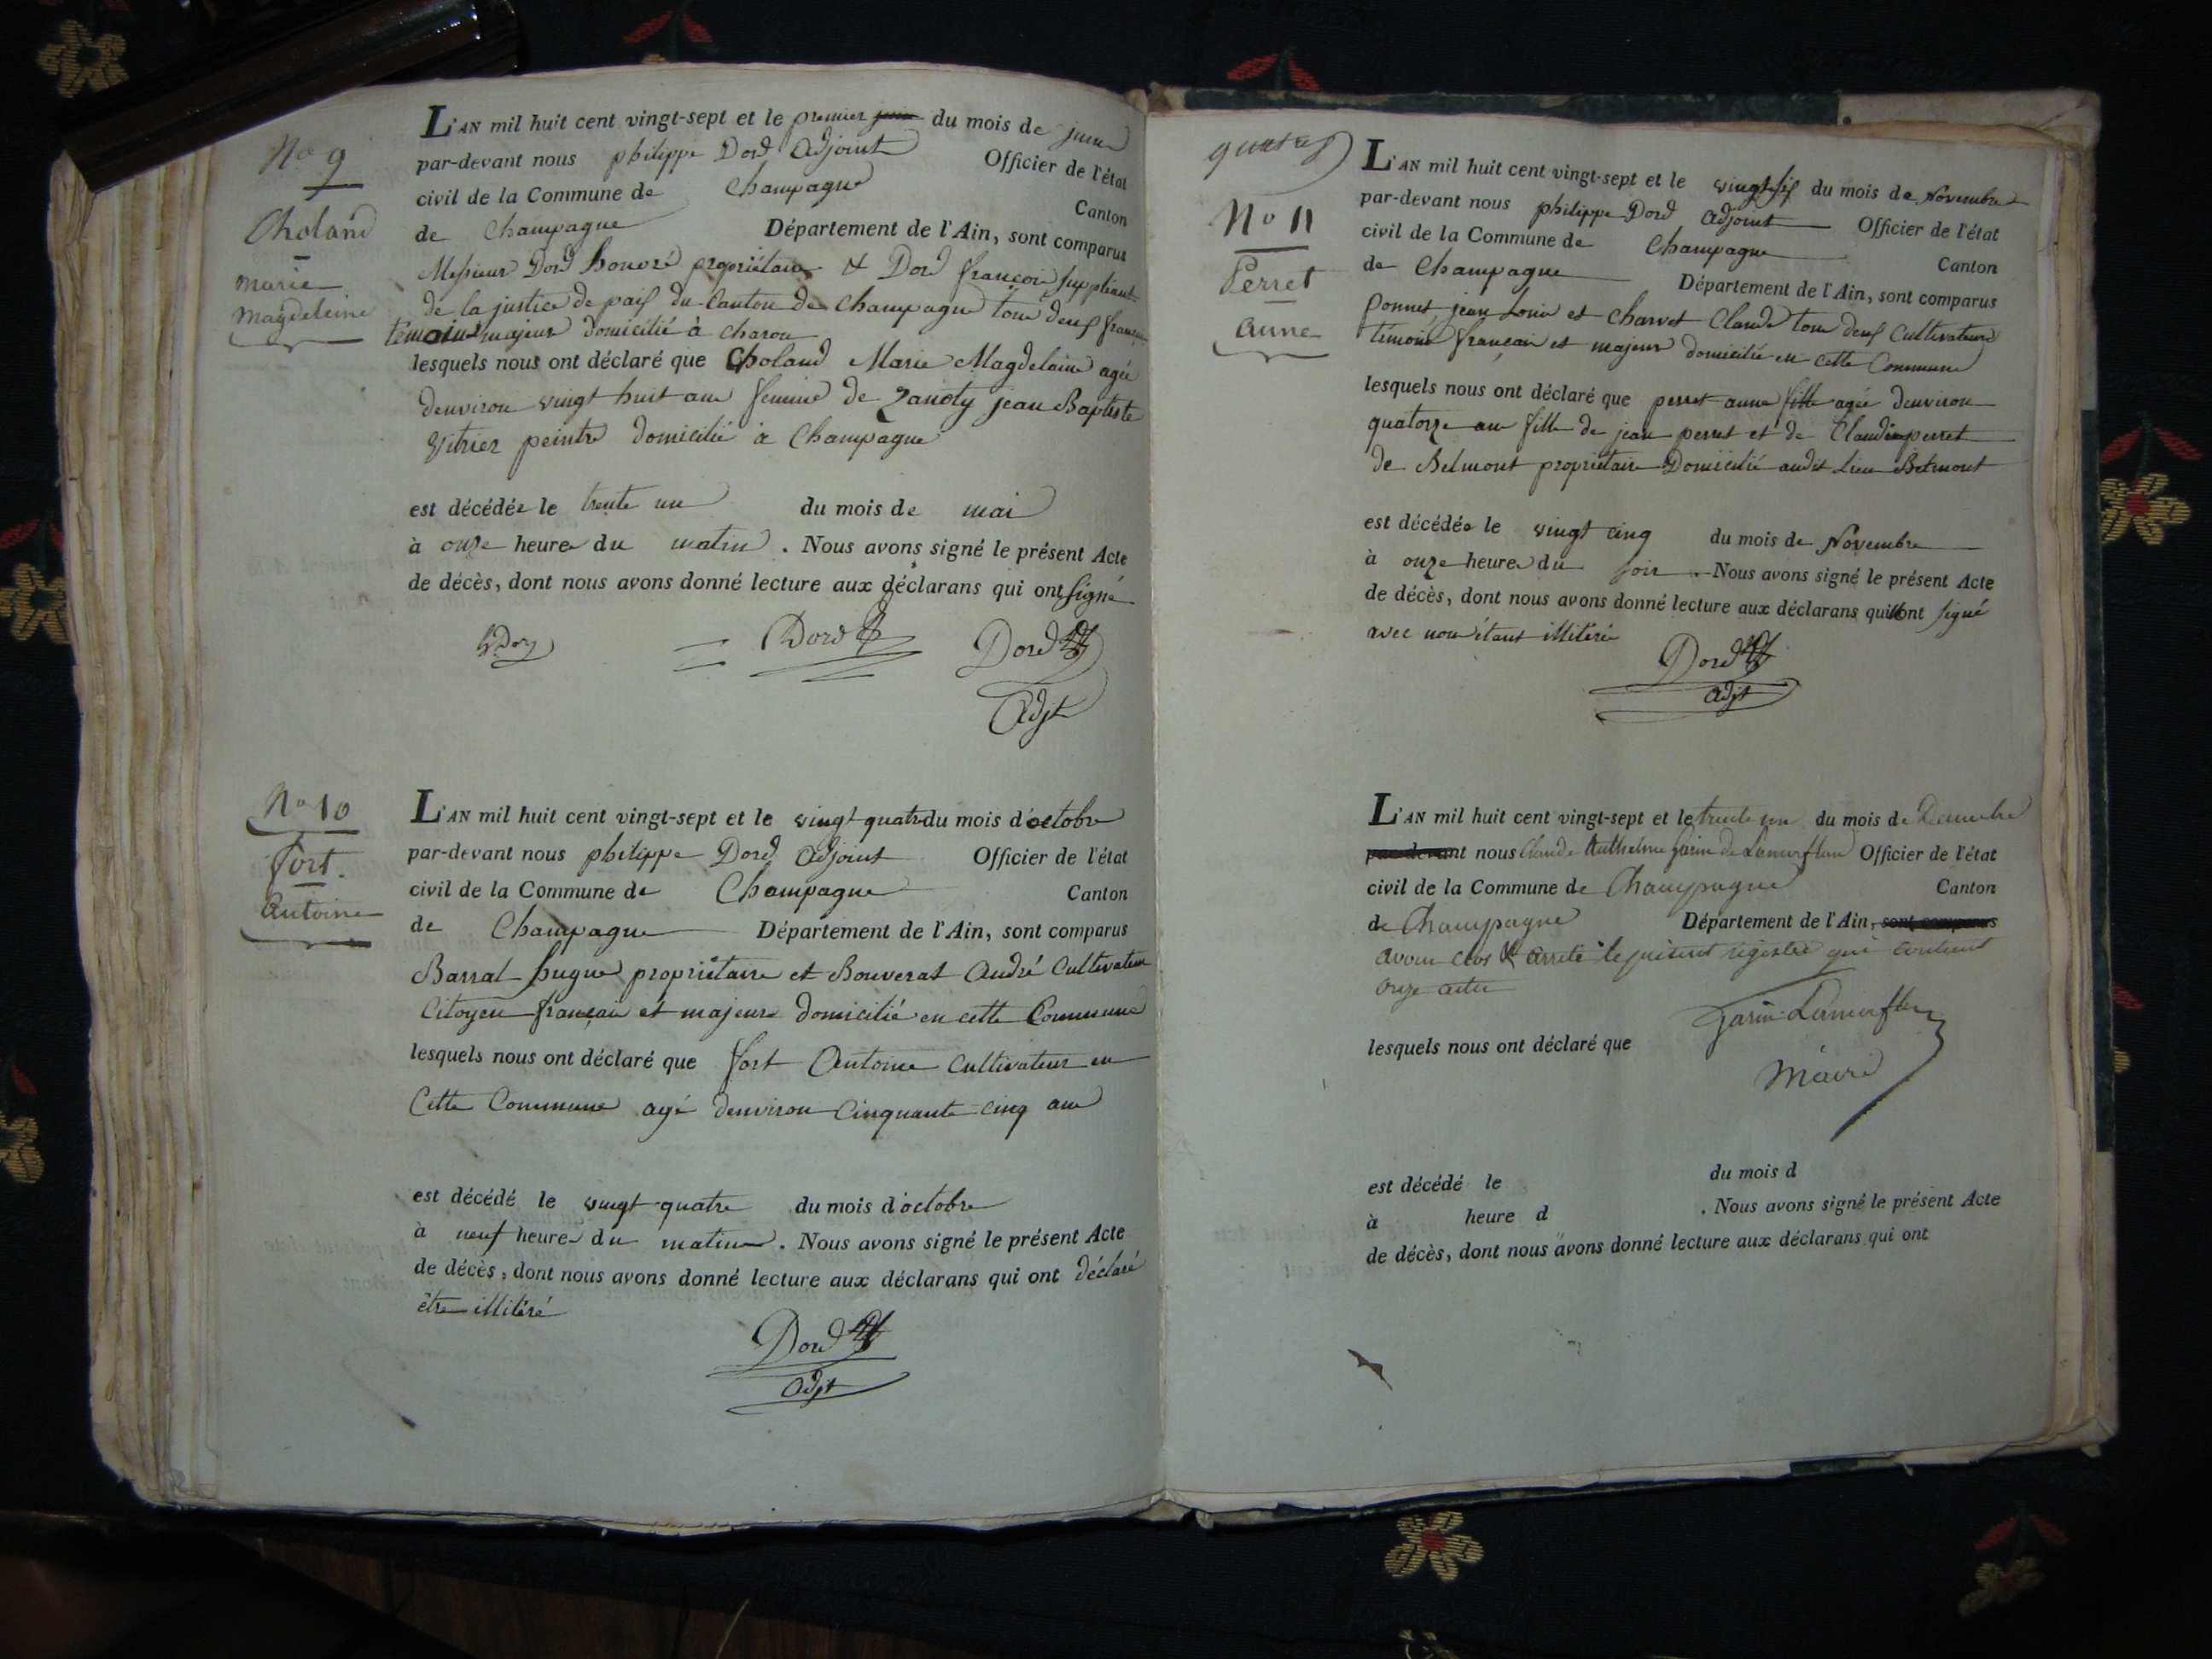 No 9
Choland
marie
magdeleine
L'AN mil huit cent vingt-sept et le premier juin du mois de juin
par-devant nous philippe Dord adjoint Officier de l'état
civil de la Commune de Champagne Canton
de Champagne Département de l'Ain, sont comparus
Messieurs Dord honoré propriétaire & Dord françois suppléant
de la justice de paix du Canton de Champagne tous deux français
témoins majeurs domicilié à charon
lesquels nous ont déclaré que Choland Marie Magdelaine agée
denviron vingt huit ans femme de Zanoty jean Baptiste
vitrier peintre domicilié à Champagne
est décédée le trente un du mois de mai
à onze heures du matin. Nous avons signé le présent Acte
de décès, dont nous avons donné lecture aux déclarans qui ont signé
Dord Dord
Adjt
No 10
fort.
Antoine
L'AN mil huit cent vingt-sept et le vingt quatre du mois d'octobre
par-devant nous philippe Dord adjoint Officier de l'état
civil de la Commune de Champagne Canton
de Champagne Département de l'Ain, sont comparus
Barral hugue propriétaire et Bouverat André Cultivateur
Citoyen français et majeurs domicilié en cette Commune
lesquels nous ont déclaré que fort Antoine Cultivateur en
Cette Commune agé denviron Cinquante cinq ans
est décédé le vingt quatre du mois d'octobre
à neuf heures du matin. Nous avons signé le présent Acte
de décès, dont nous avons donné lecture aux déclarans qui ont déclaré
être illitéré
Dord
adjt
quatre
No 11
Perret
anne
L'AN mil huit cent vingt-sept et le vingt six du mois de Novembre
par-devant nous philippe Dord adjoint Officier de l'état
civil de la Commune de Champagne Canton
de Champagne Département de l'Ain, sont comparus
Ponnet jean Louis et Charvet Claude tous deux Cultivateurs
témoins français et majeurs domicilié en cette Commune
lesquels nous ont déclaré que perret anne fille agée denviron
quatorze ans fille de jean perret et de Claudine perret
de Belmont propriétaire Domicilié audit Lieu Belmont
est décédée le vingt cinq du mois de Novembre
à onze heures du soir. Nous avons signé le présent Acte
de décès, dont nous avons donné lecture aux déclarans qui ont signé
avec nous étant illitéré
Dord
adjt
L'AN mil huit cent vingt-sept et le trente un du mois de Décembre
par-devant nous Claude Anthelme garin de Officier de l'état
civil de la Commune de Champagne Canton
de Champagne Département de l'Ain, sont comparus
avons clos & arreté le présent régistre qui contient
onze actes
lesquels nous ont déclaré que
Maire
est décédé le du mois d
à heure d . Nous avons signé le présent Acte
de décès, dont nous avons donné lecture aux déclarans qui ont